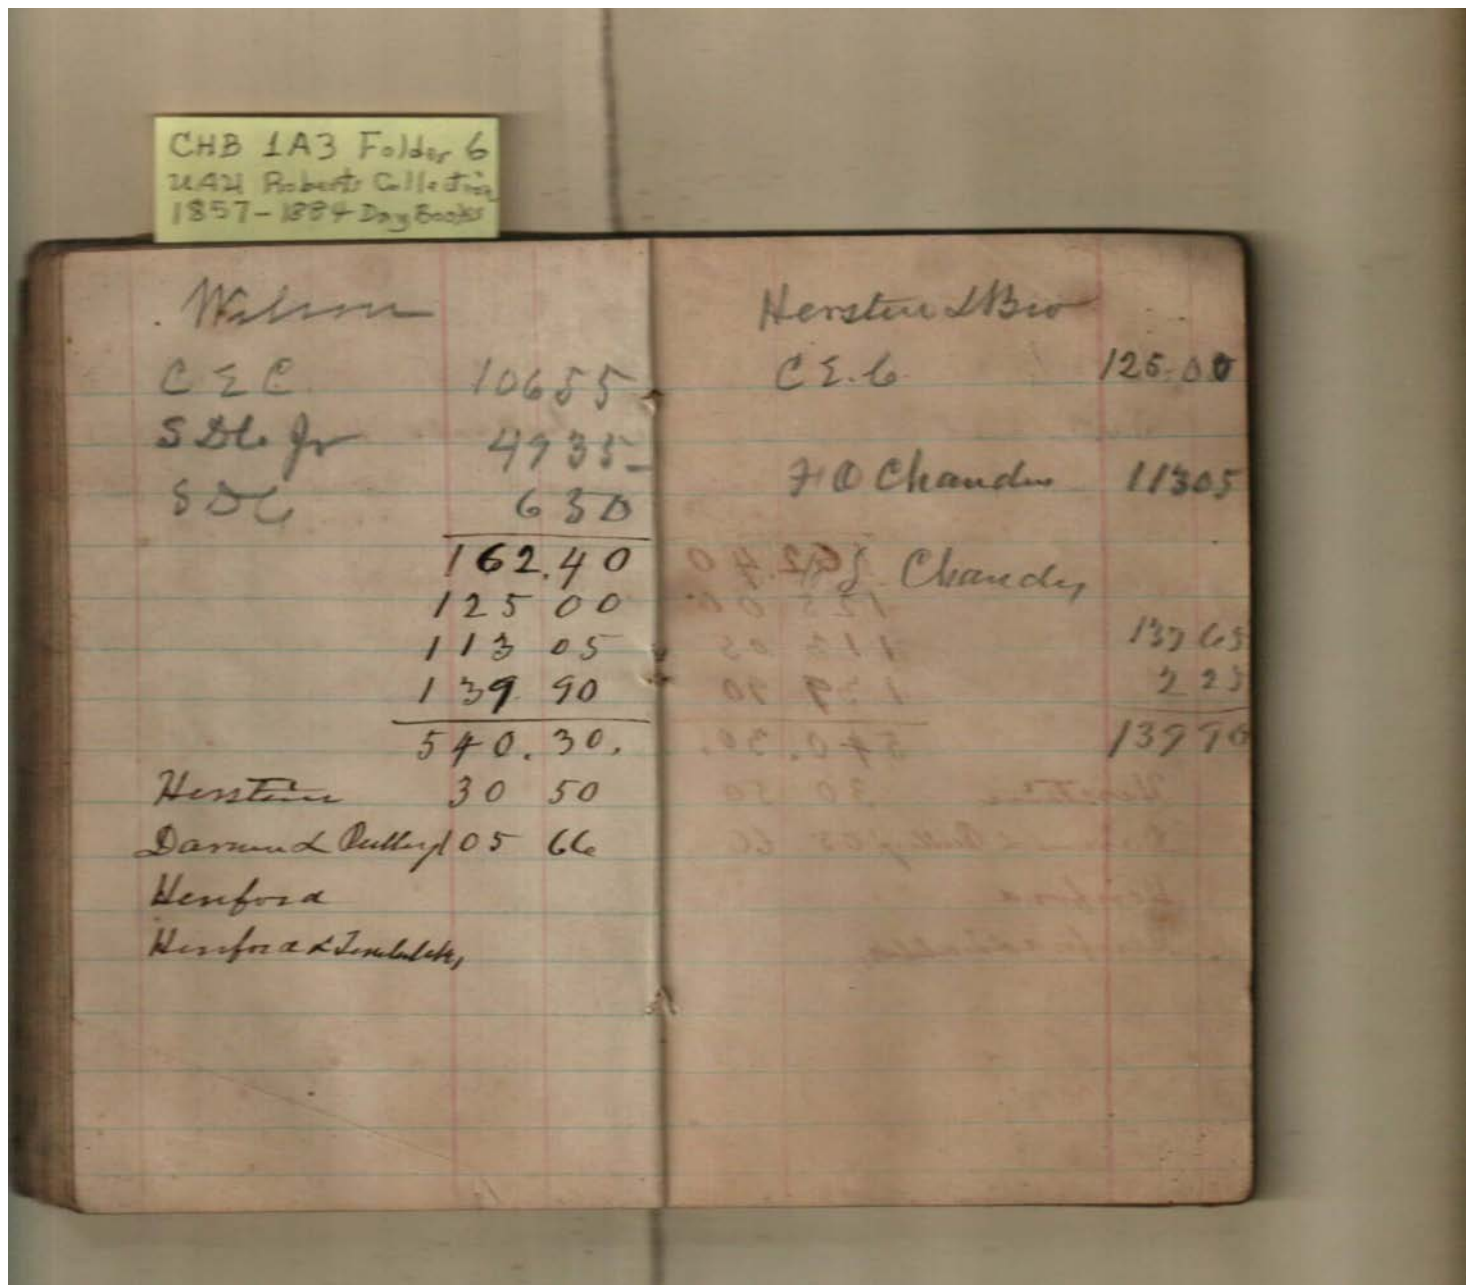 CHB 1A3 Folder 6
UAH Roberts Collection
1857-1884 Day Books
Wilson
C E C 10655
S D C Jr 4935-
S D C 630
162.40
125 00
113 05
139 90
540.30.
Herstein 30 50
105 66
Herford
Herford &
Herstein & Bro
C E. C 125.00
F O Chandler 11305
Chandler
13765
225
13990